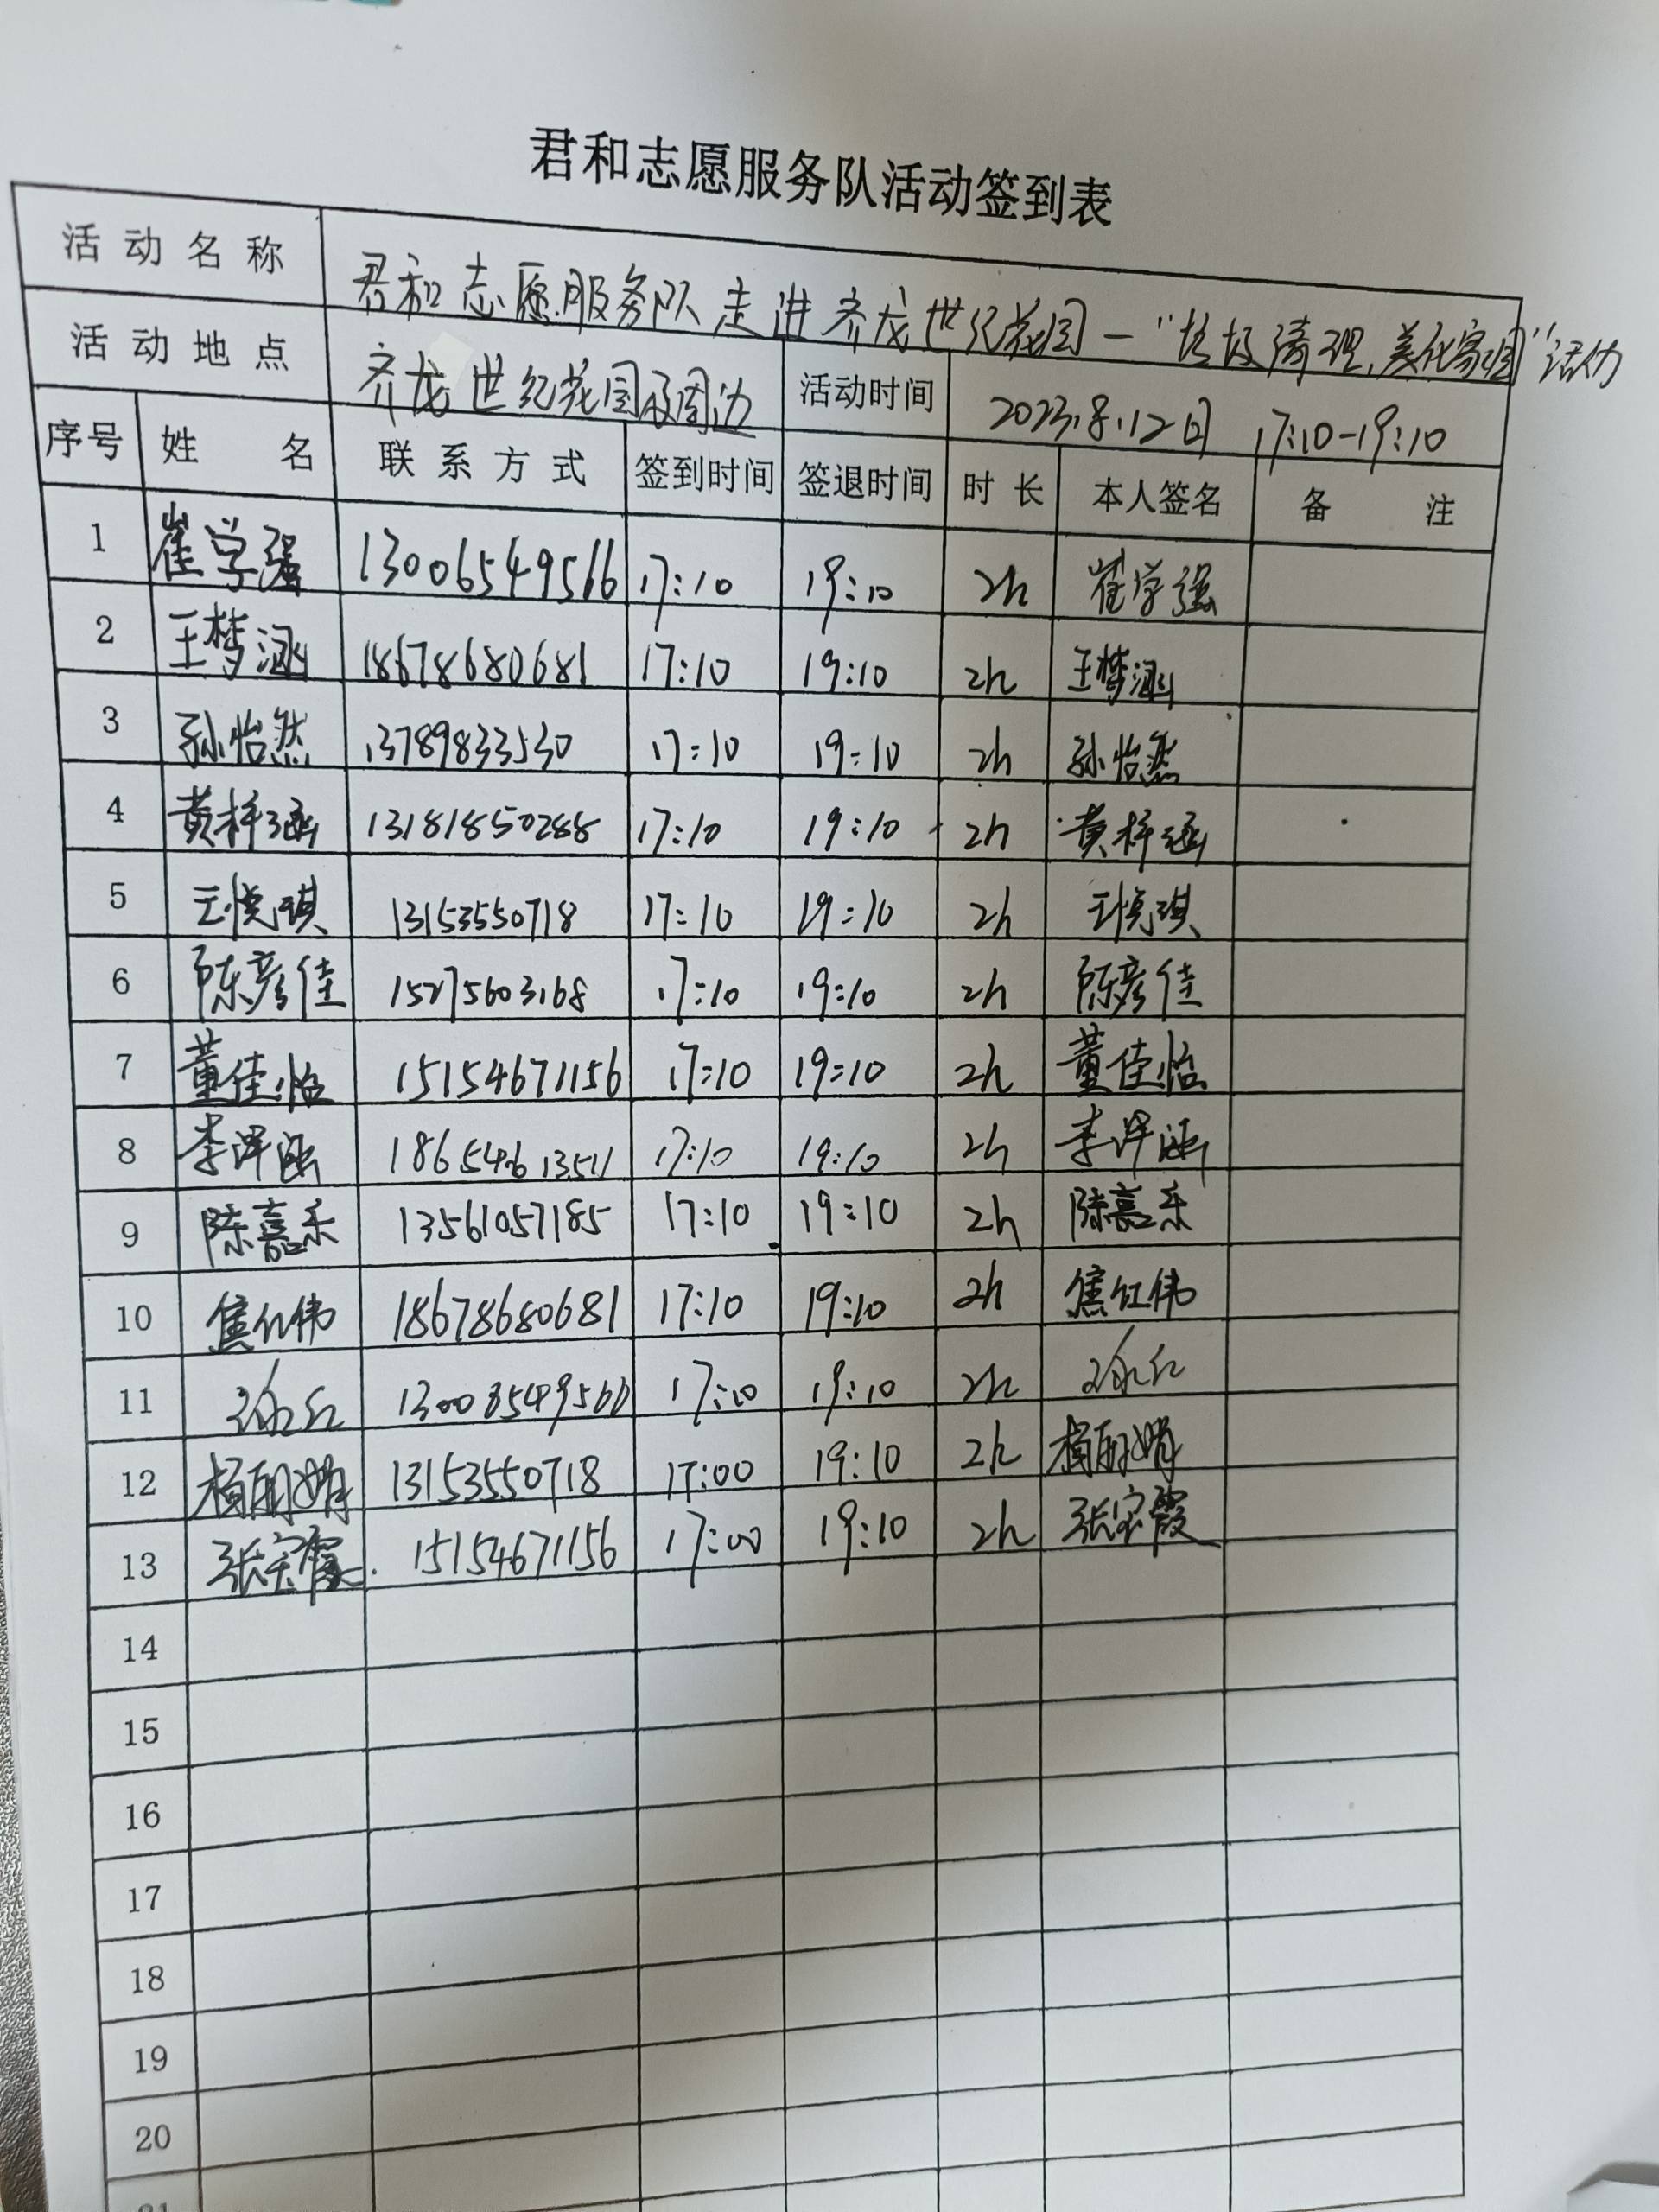 君和志愿服务队活动签到表
活动名称 君和志愿服务队走进齐龙世纪花园—“垃圾清理,美化家园”活动
活动地点 齐龙世纪花园及周边 活动时间 2023.8.12日 17:10-19:10
序号 姓名 联系方式 签到时间 签退时间 时长 本人签名 备注
1 崔学强 13006549566 17:10 19:10 2h 崔学强
2 王梦涵 18678680681 17:10 19:10 2h 王梦涵
3 孙怡然 13789833530 17:10 19:10 2h 孙怡然
4 黄梓涵 13181850288 17:10 19:10 2h 黄梓涵
5 王悦琪 13153550718 17:10 19:10 2h 王悦琪
6 陈彦佳 15275603168 17:10 19:10 2h 陈彦佳
7 董佳怡 15154671156 17:10 19:10 2h 董佳怡
8 李泽涵 17:10 19:10 2h 李泽涵
9 陈嘉乐 13561057185 17:10 19:10 2h 陈嘉乐
10 焦红伟 18678680681 17:10 19:10 2h 焦红伟
11 17:10 19:10 2h
12 杨丽娟 13153550718 17:00 19:10 2h 杨丽娟
13 张宝霞 15154671156 17:00 19:10 2h 张宝霞
14
15
16
17
18
19
20
21